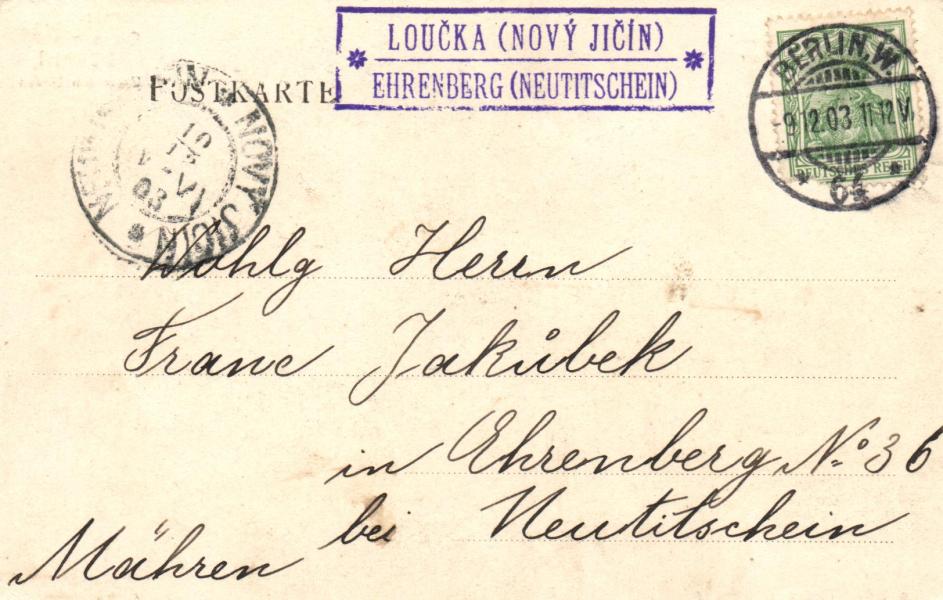 LOUČKA (NOVÝ JIČÍN)
EHRENBERG (NEUTITSCHEIN)
POSTKARTE
BERLIN.W.
-9.12.03. 11-12V.
DEUTSCHES REICH
NOVÝ JIČÍN
10
03
Wohlg Herrn
Franc Jakůbek
in Ehrenberg No. 36
bei Neutitschein
Mähren